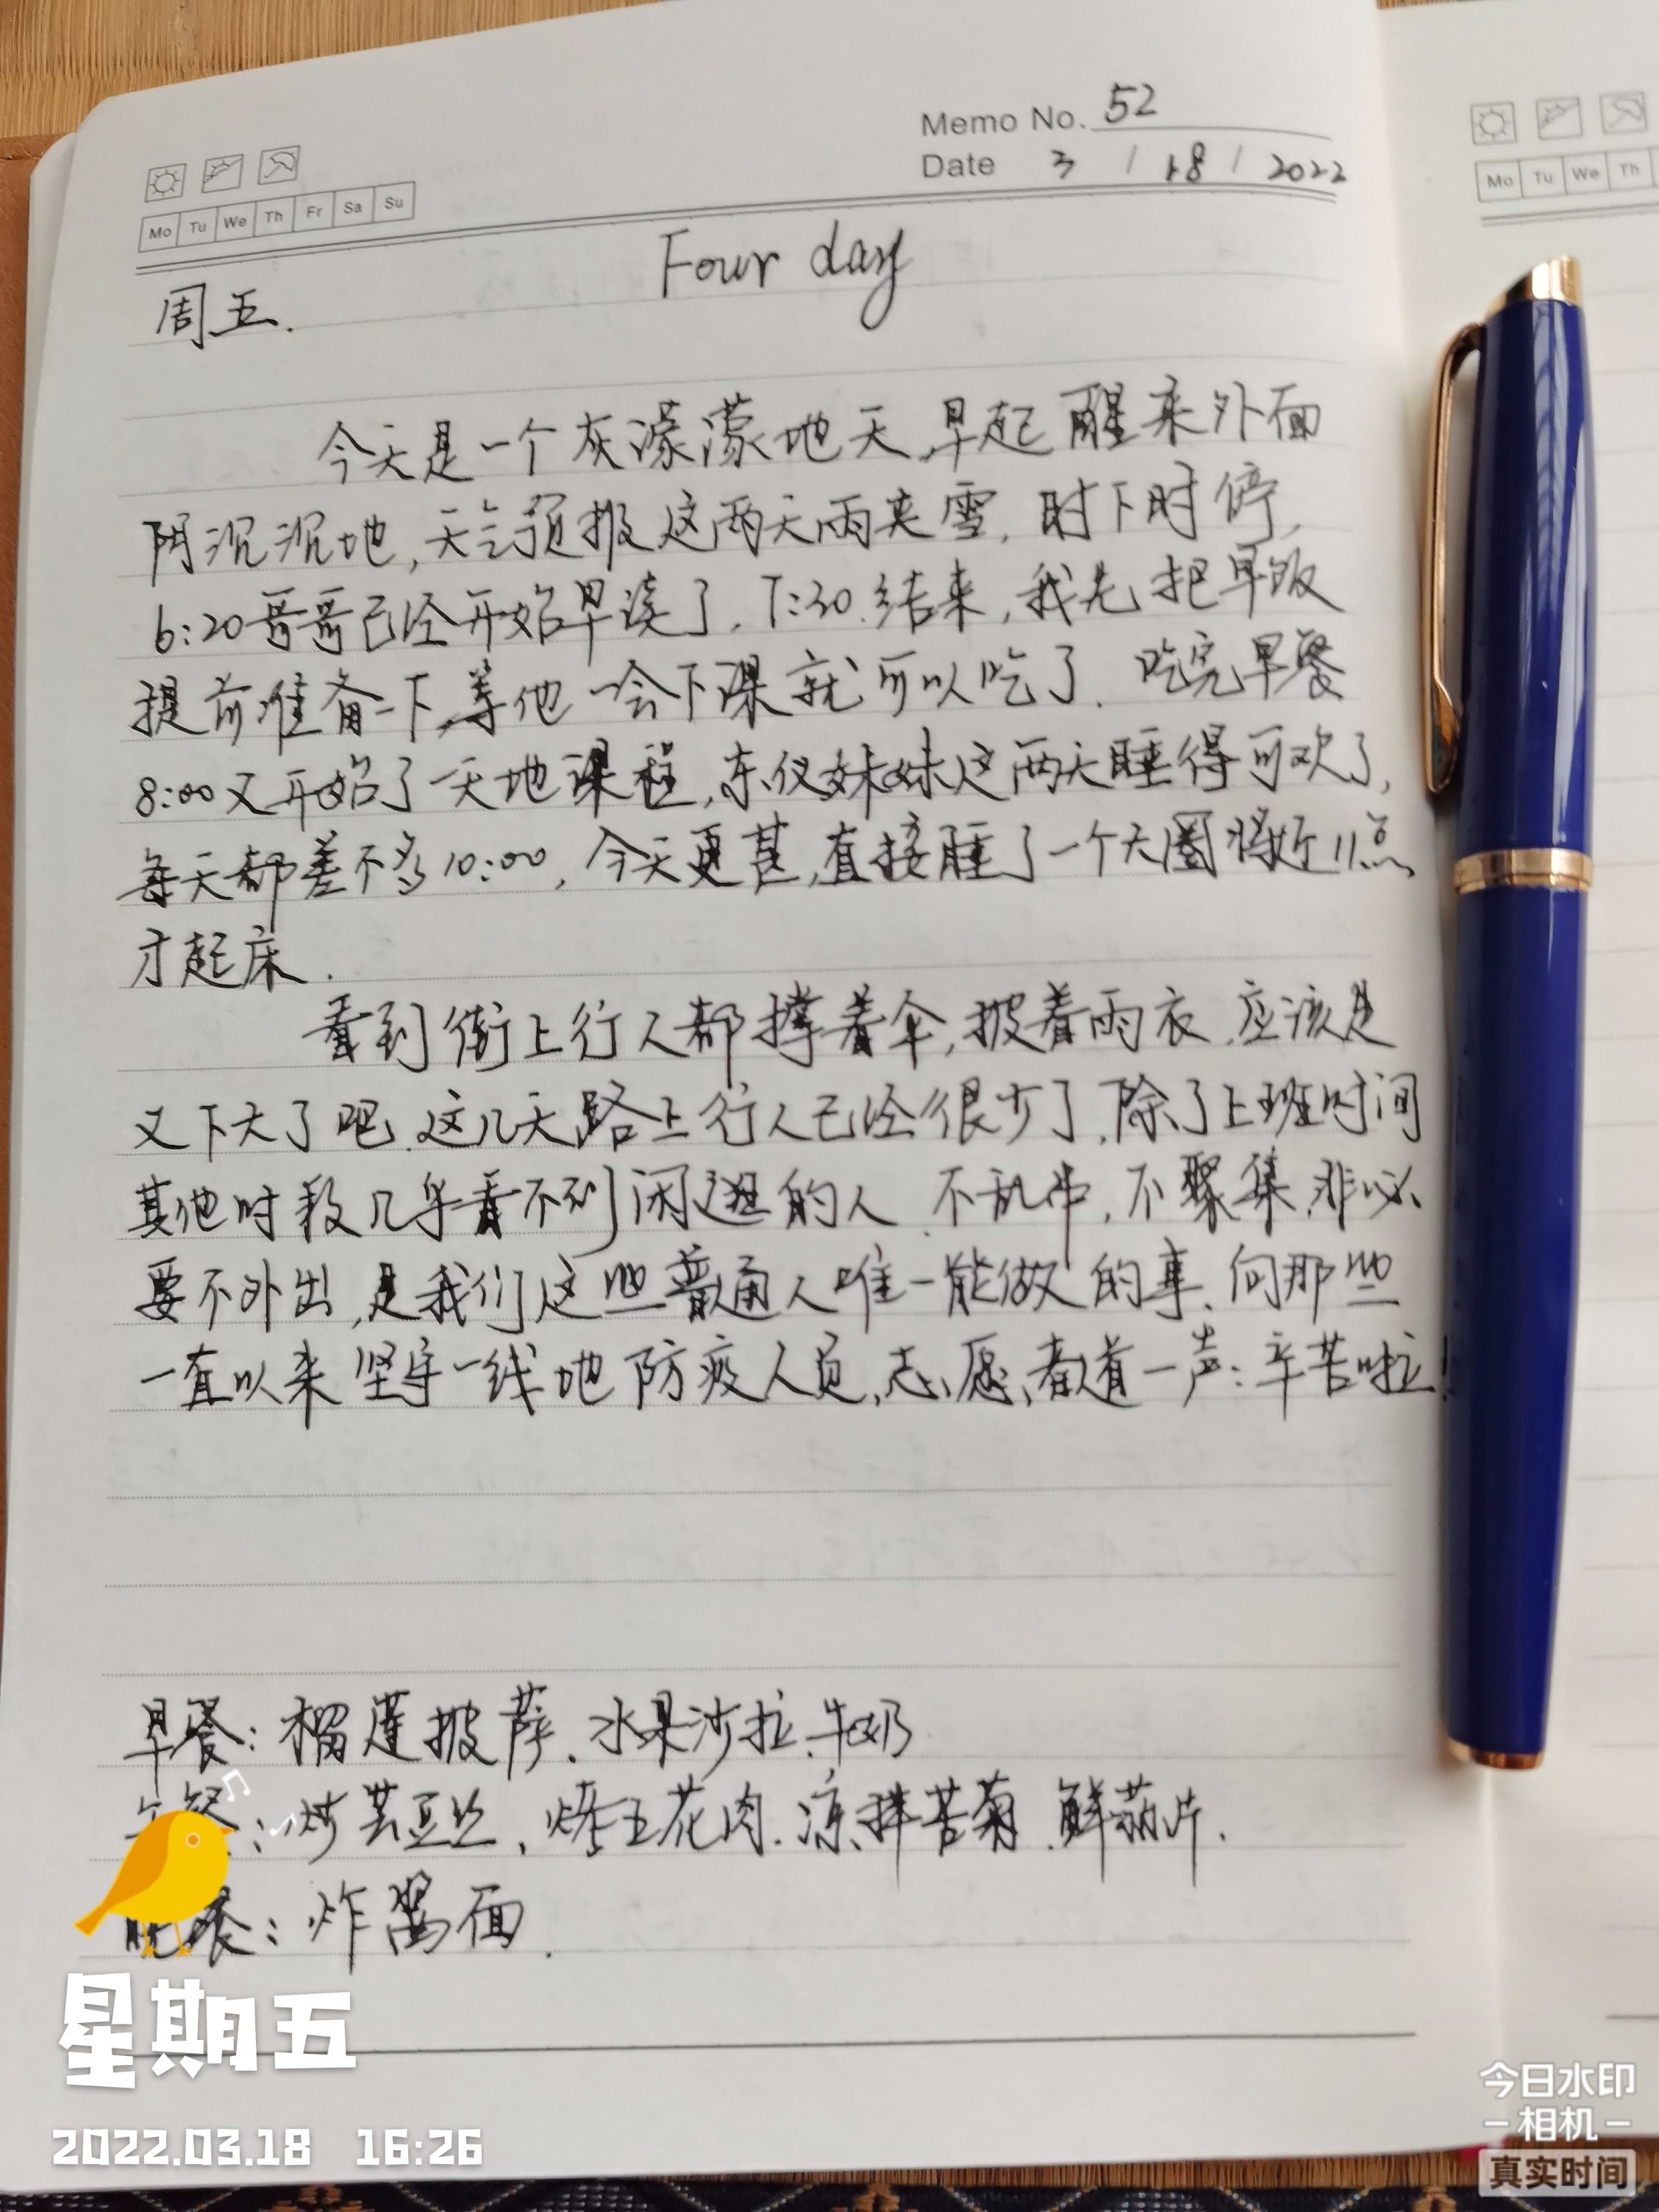 Memo No. 52
Date 3 / 18 / 2022
Mo Tu We Th Fr Sa Su
Mo Tu We Th
Four day
周五.
今天是一个灰濛濛地天,早起醒来外面
阴沉沉地,天气预报这两天雨夹雪,时下时停,
6:20哥哥已经开始早读了,7:30.结束,我先把早饭
提前准备一下,等他一会下课就可以吃了.吃完早餐
8:00又开始了一天地课程,东仪妹妹这两天睡得可欢了,
每天都差不多10:00,今天更甚,直接睡了一个大圈将近11点
才起床.
看到街上行人都撑着伞,披着雨衣.应该是
又下大了吧.这几天路上行人已经很少了,除了上班时间
其他时段几乎看不到闲逛的人.不乱串,不聚集,非必
要不外出,是我们这些普通人唯一能做的事.向那些
一直以来坚守一线地防疫人员,志愿者道一声:辛苦啦!
早餐:榴莲披萨.水果沙拉.牛奶
午餐:炒芸豆丝,烤五花肉.凉拌苦菊.鲜藕片.
晚餐:炸酱面.
星期五
2022.03.18 16:26
今日水印
-相机-
真实时间